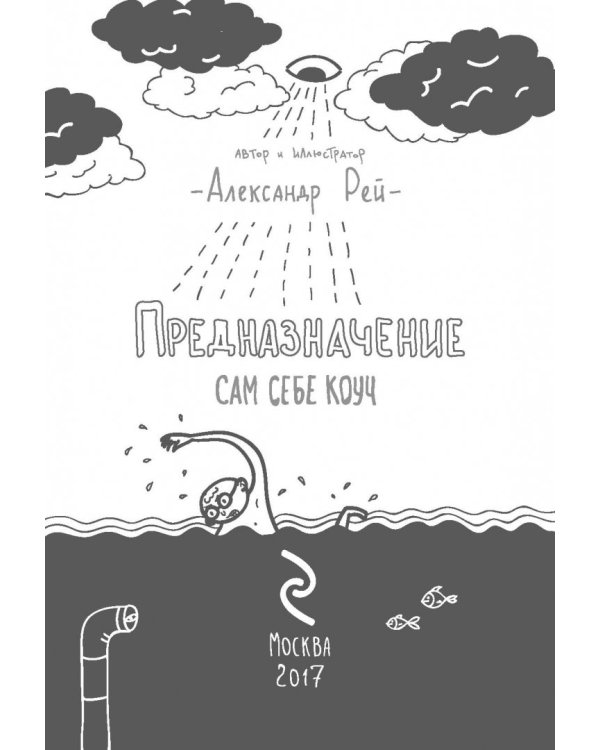 АВТОР И ИЛЛЮСТРАТОР
-Александр Рей-
Предназначение
САМ СЕБЕ КОУЧ
Москва
2017